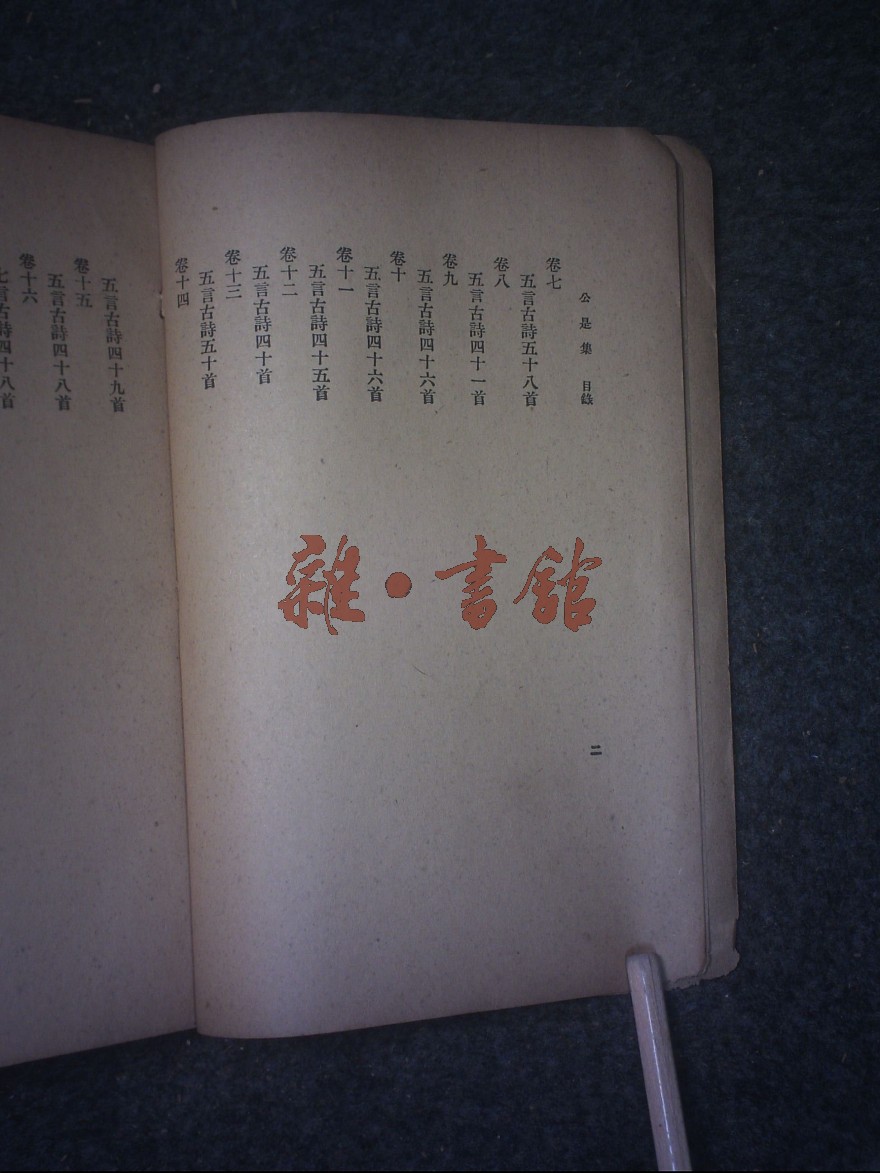 公是集 目錄
卷七
五言古詩五十八首
卷八
五言古詩四十一首
卷九
五言古詩四十六首
卷十
五言古詩四十六首
卷十一
五言古詩四十五首
卷十二
五言古詩四十首
卷十三
五言古詩五十首
卷十四
二
五言古詩四十九首
卷十五
五言古詩四十八首
卷十六
七言古詩四十八首
雜·書館